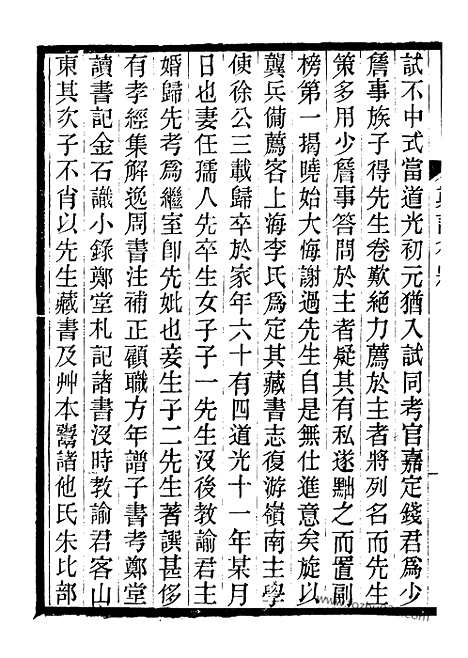 試不中式當道光初元猶入試同考官嘉定錢君爲少
詹事族子得先生卷歎絕力薦於主者將列名而先生
策多用少詹事答問於主者疑其有私遂黜之而置副
榜第一揭曉始大悔謝過先生自是無仕進意矣旋以
龔兵備薦客上海李氏爲定其藏書志復游嶺南主學
使徐公三載歸卒於家年六十有四道光十一年某月
日也妻任孺人先卒生女子子一先生沒後教諭君主
婚歸先考爲繼室卽先妣也妾生子二先生著譔甚侈
有孝經集解逸周書注補正顧職方年譜子書考鄭堂
讀書記金石識小錄鄭堂札記諸書沒時教諭君客山
東其次子不肖以先生藏書及艸本鬻諸他氏朱比部